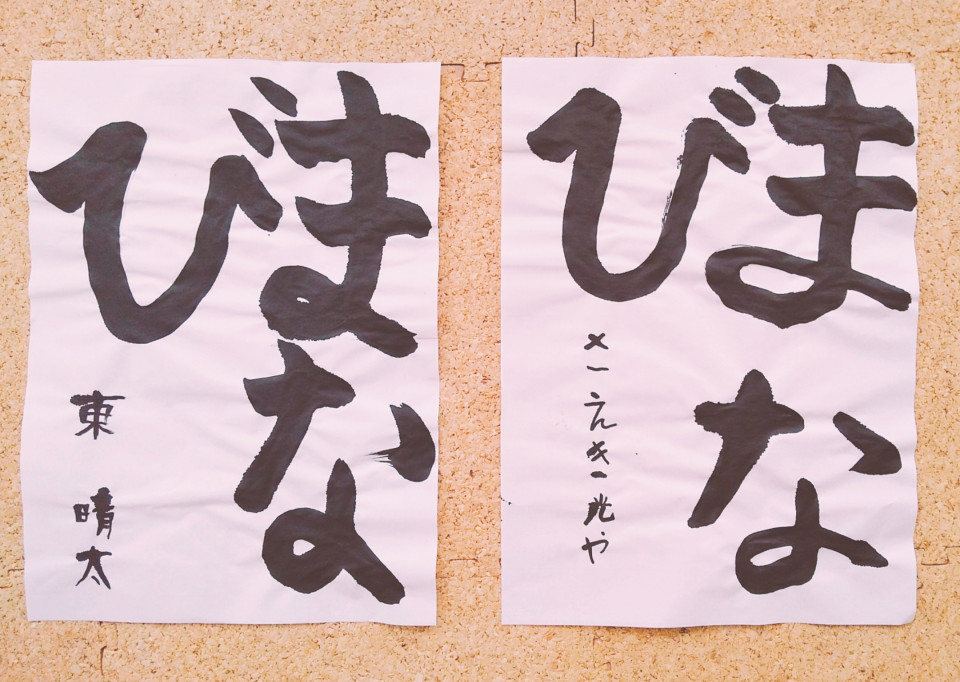 まな
び
東 晴太
まな
び
さえき光や